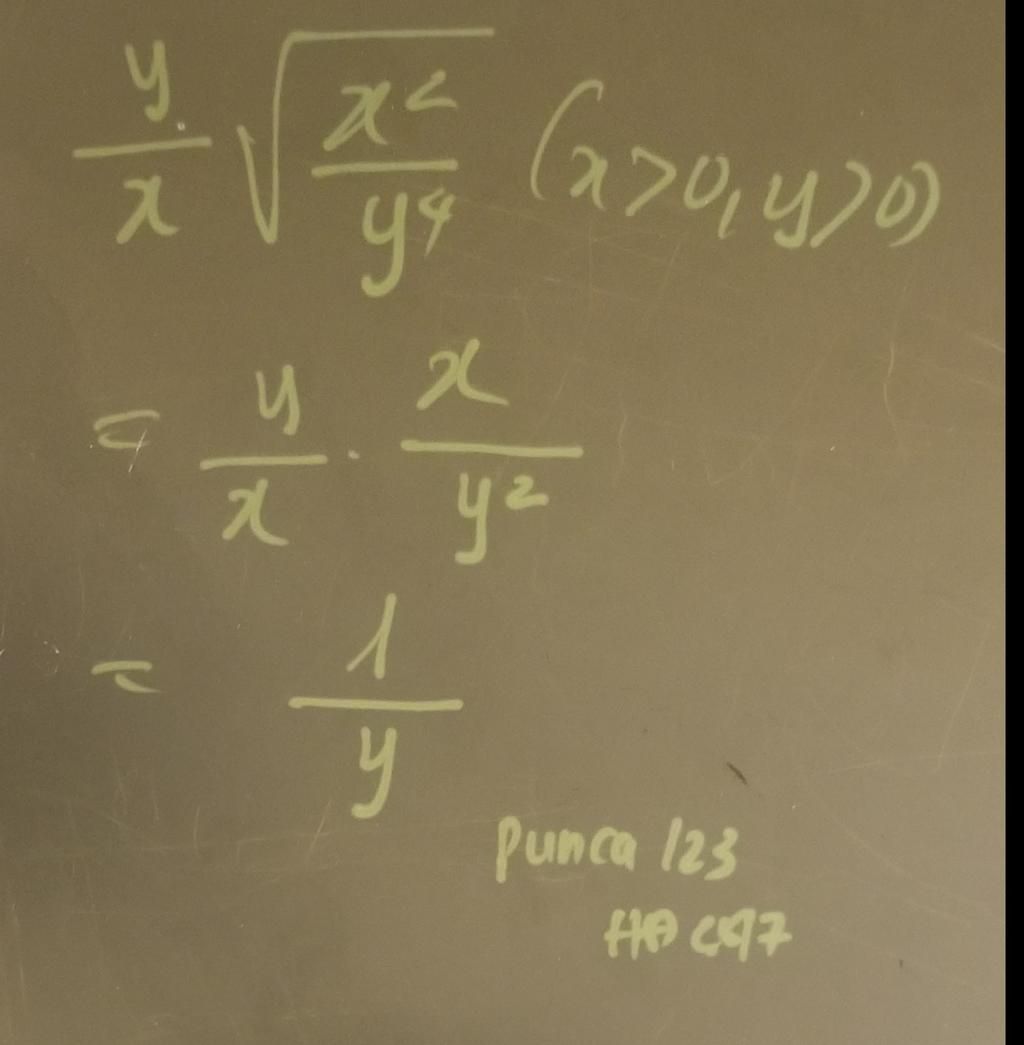 y/x √(x²/y⁴) (x>0, y>0)
= y/x · x/y²
= 1/y
Punca 123